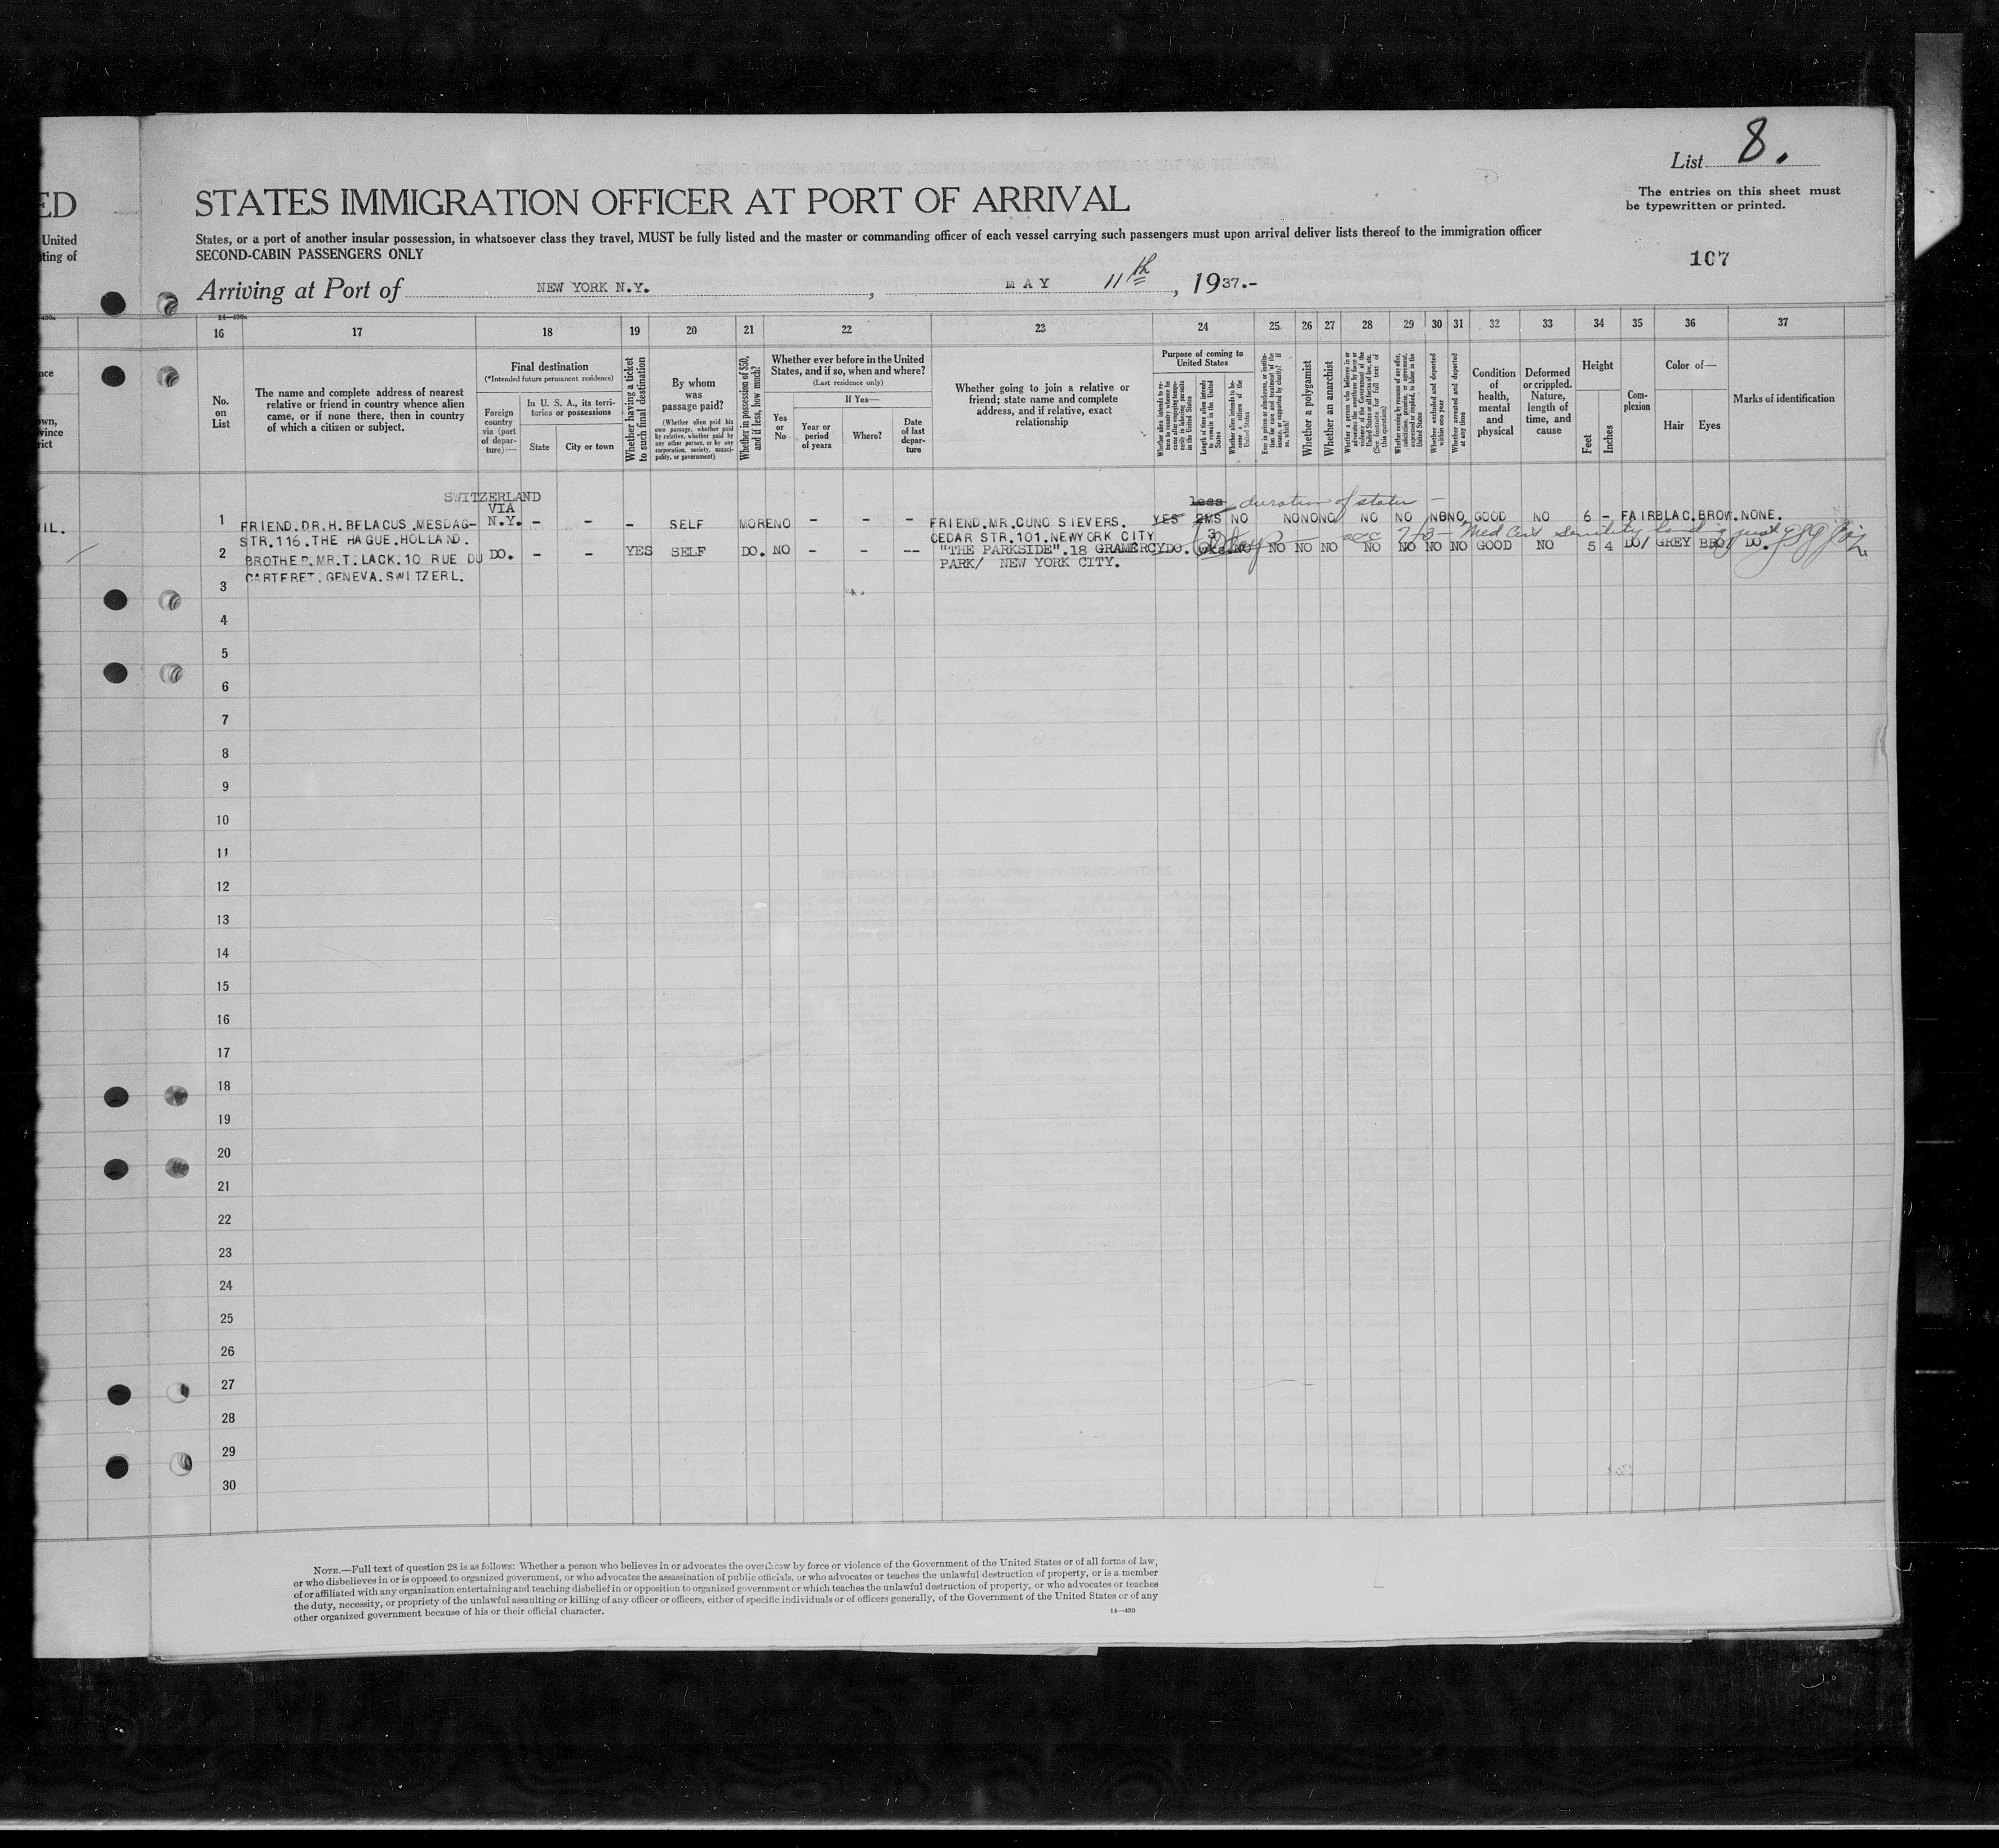 List 8.
The entries on this sheet must
be typewritten or printed.
107
ED
STATES IMMIGRATION OFFICER AT PORT OF ARRIVAL
United
ting of
States, or a port of another insular possession, in whatsoever class they travel, MUST be fully listed and the master or commanding officer of each vessel carrying such passengers must upon arrival deliver lists thereof to the immigration officer
SECOND-CABIN PASSENGERS ONLY
Arriving at Port of NEW YORK N.Y., MAY 11th, 1937.-
16 17 18 19 20 21 22 23 24 25 26 27 28 29 30 31 32 33 34 35 36 37
No.
on
List
The name and complete address of nearest
relative or friend in country whence alien
came, or if none there, then in country
of which a citizen or subject.
Final destination
(*Intended future permanent residence)
Foreign
country
via (port
of depar-
ture)—
In U. S. A., its terri-
tories or possessions
State
City or town
Whether having a ticket
to such final destination
By whom
was
passage paid?
(Whether alien paid his
own passage, whether paid
by relative, whether paid by
any other person, or by any
corporation, society, munici-
pality, or government)
Whether in possession of $50,
and if less, how much?
Whether ever before in the United
States, and if so, when and where?
(Last residence only)
Yes
or
No
If Yes—
Year or
period
of years
Where?
Date
of last
depar-
ture
Whether going to join a relative or
friend; state name and complete
address, and if relative, exact
relationship
Purpose of coming to
United States
Length of time alien intends
to remain in the United
States
Whether alien intends to be-
come a citizen of the
United States
Whether a polygamist
Whether an anarchist
Whether excluded and deported
within one year
Whether arrested and deported
at any time
Condition
of
health,
mental
and
physical
Deformed
or crippled.
Nature,
length of
time, and
cause
Height
Feet
Inches
Com-
plexion
Color of—
Hair
Eyes
Marks of identification
SWITZERLAND
VIA
less duration of status —
1 FRIEND.DR.H.BELACUS.MESDAG- N.Y. - - - SELF MORE NO - - - FRIEND.MR.CUNO SIEVERS. YES 2MS NO NO NO NO NO NO NO NO GOOD NO 6 - FAIR BLAC. BROW. NONE.
STR.116.THE HAGUE.HOLLAND. CEDAR STR.101.NEWYORK CITY 3
2 BROTHER.MR.T.LACK.10 RUE DU DO. - - YES SELF DO. NO - - -- "THE PARKSIDE".18 GRAMERCY DO. NO NO NO NO NO NO NO NO GOOD NO 5 4 DO/ GREY BRO/ DO.
CARTERET.GENEVA.SWITZERL. PARK/ NEW YORK CITY.
3
4
5
6
7
8
9
10
11
12
13
14
15
16
17
18
19
20
21
22
23
24
25
26
27
28
29
30
NOTE.—Full text of question 28 is as follows: Whether a person who believes in or advocates the overthrow by force or violence of the Government of the United States or of all forms of law,
or who disbelieves in or is opposed to organized government, or who advocates the assassination of public officials, or who advocates or teaches the unlawful destruction of property, or is a member
of or affiliated with any organization entertaining and teaching disbelief in or opposition to organized government or which teaches the unlawful destruction of property, or who advocates or teaches
the duty, necessity, or propriety of the unlawful assaulting or killing of any officer or officers, either of specific individuals or of officers generally, of the Government of the United States or of any
other organized government because of his or their official character.
14—430